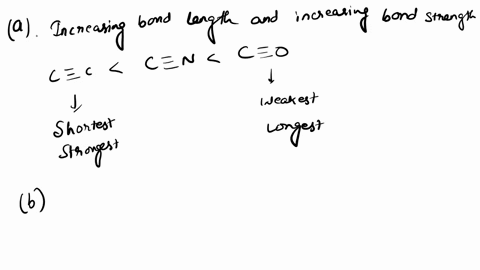 (a). Increasing bond length and increasing bond strength
C≡C < C≡N < C≡O
↓ ↓
Shortest Weakest
Strongest Longest
(b)